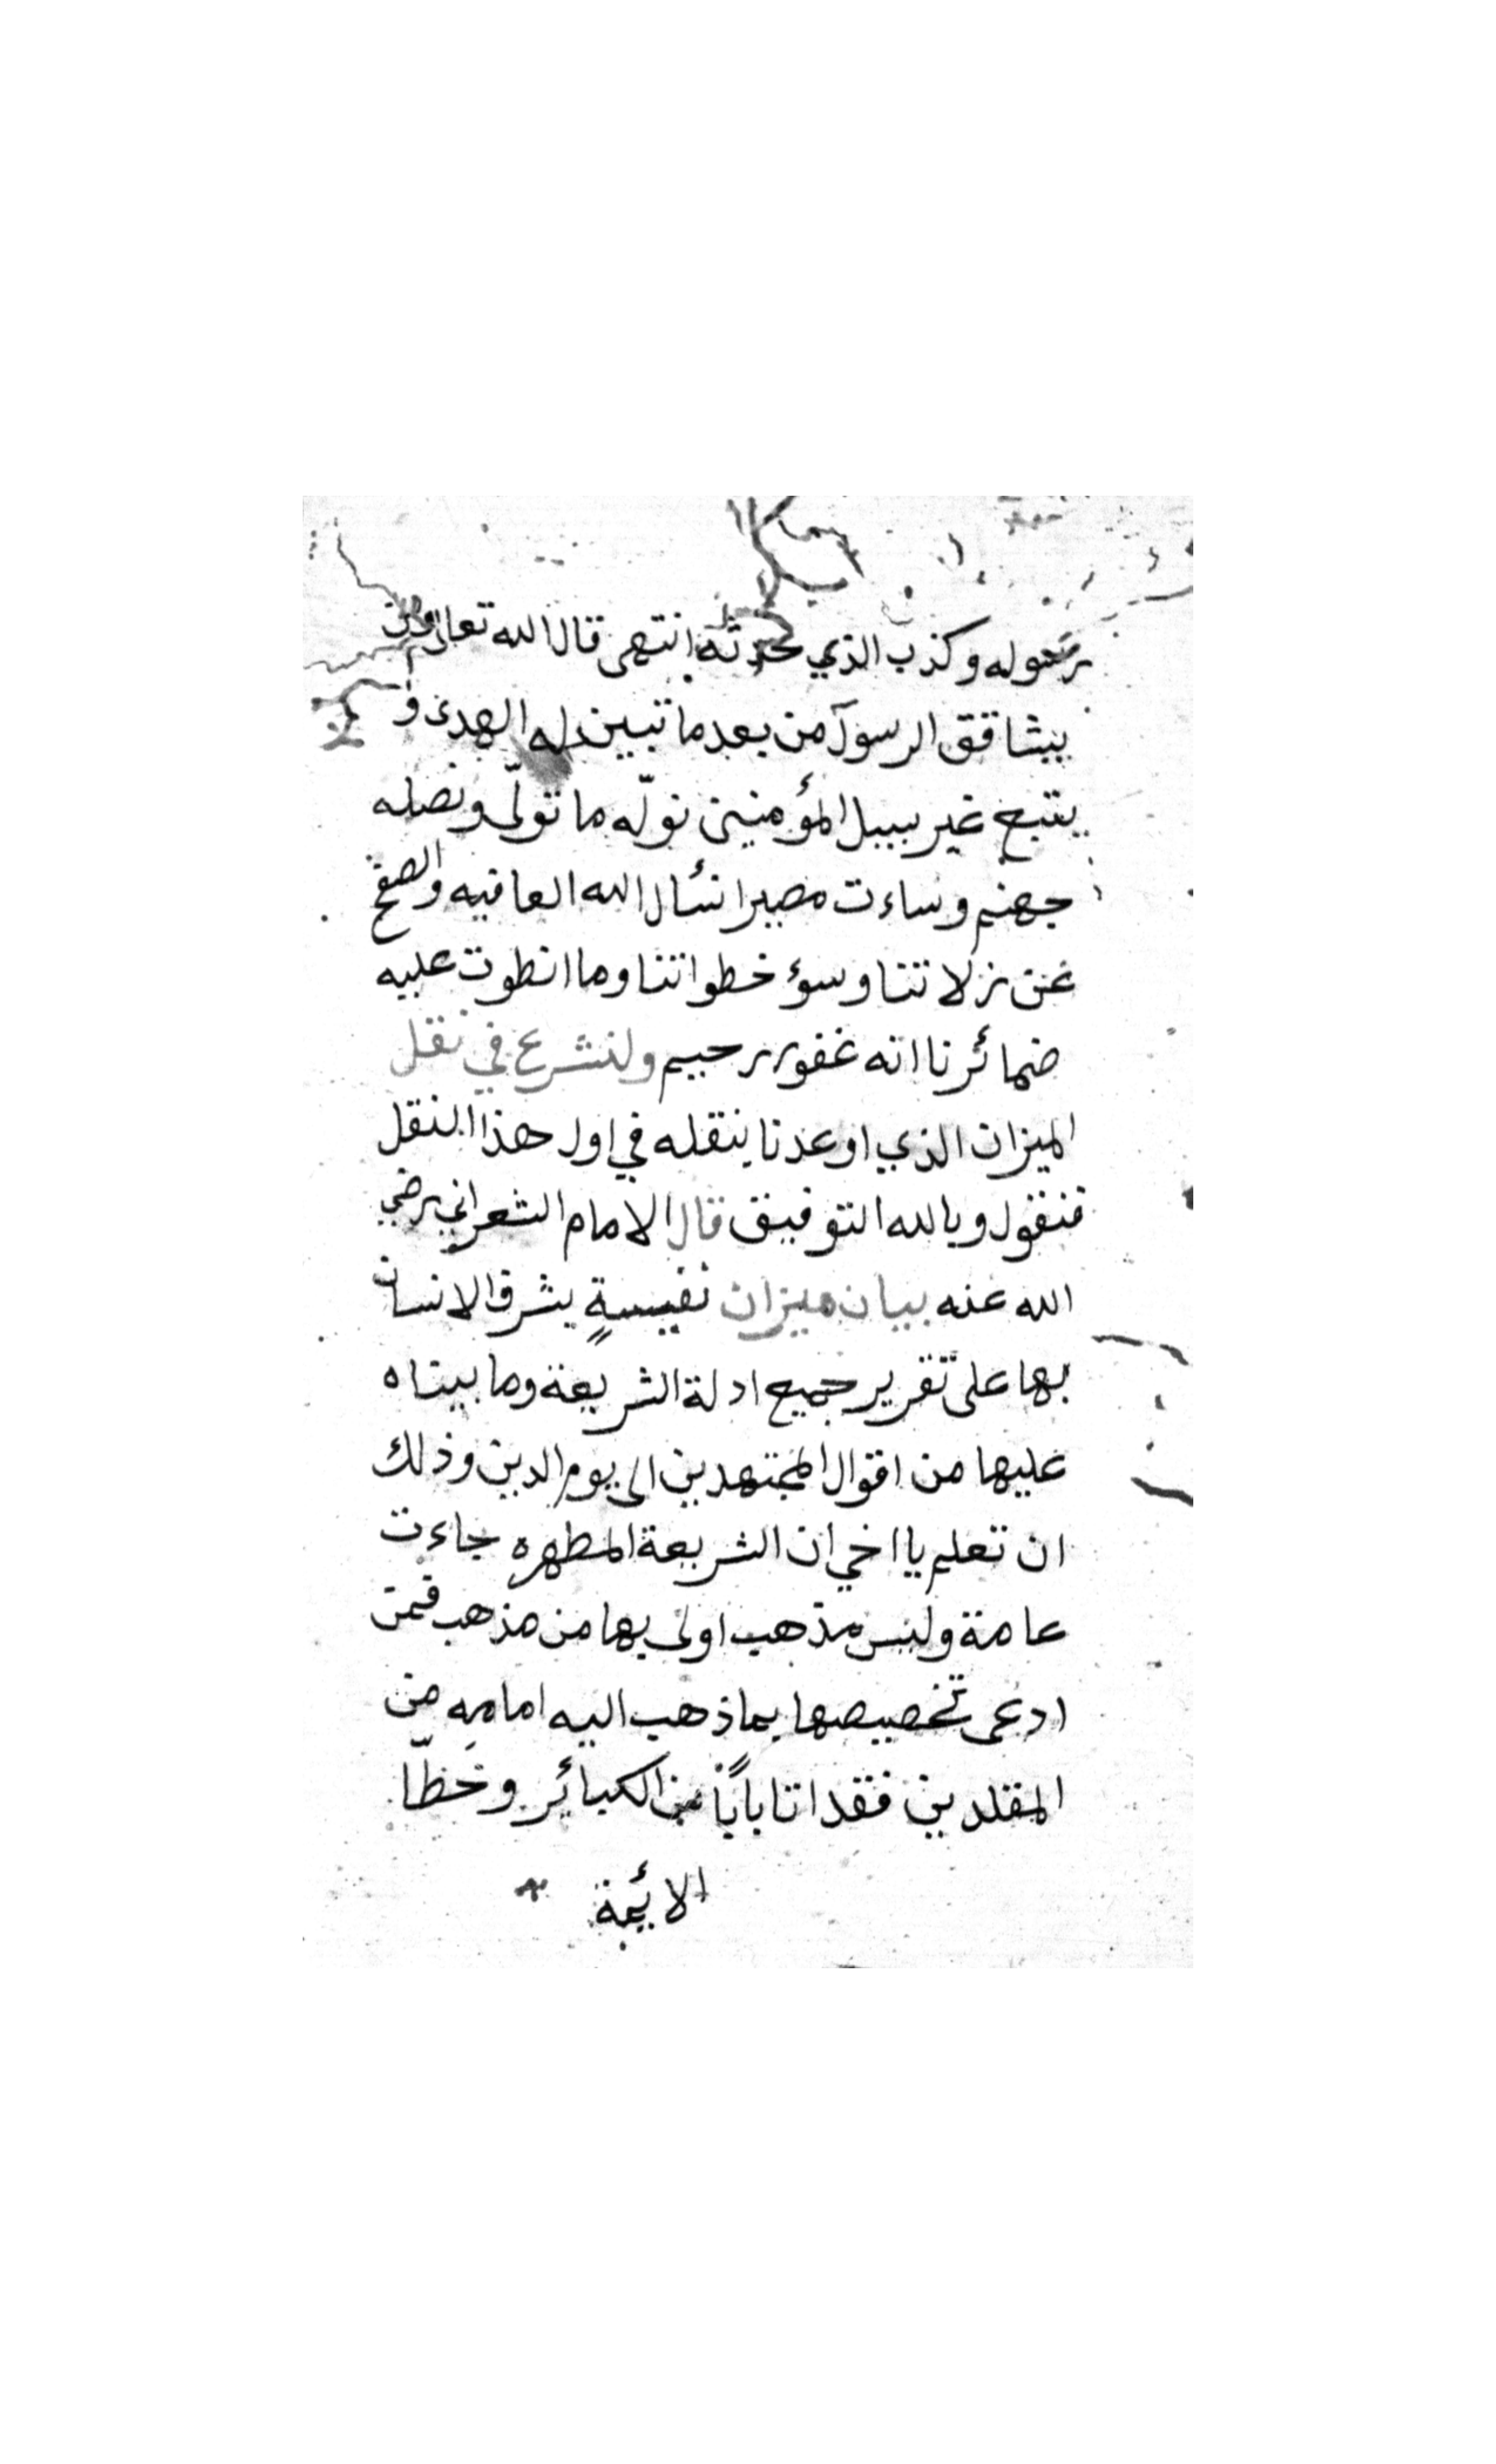 رسوله وكذب الذي حدثه انتهى قال الله تعالى ومن
يشاقق الرسول من بعد ما تبين له الهدى و
يتبع غير سبيل المؤمنين نولّه ما تولّى ونصله
جهنم وساءت مصيرا نسأل الله العافيه والصفح
عن زلاتنا وسؤ خطواتنا وما انطوت عليه
ضمائرنا انه غفور رحيم ولنشرع في نقل
الميزان الذي اوعدنا بنقله في اول هذا النقل
فنقول وبالله التوفيق قال الامام الشعراني رضي
الله عنه بيان ميزان نفيسةٍ يشرف الانسان
بها على تقرير جميع ادلة الشريعة وما بيناه
عليها من اقوال المجتهدين الى يوم الدين وذلك
ان تعلم يا اخي ان الشريعة المطهره جاءت
عامة وليس مذهب اولى بها من مذهب فمن
ادعى تخصيصها بما ذهب اليه امامه من
المقلدين فقد اتا باباً من الكبائر وخطّا
الائمة